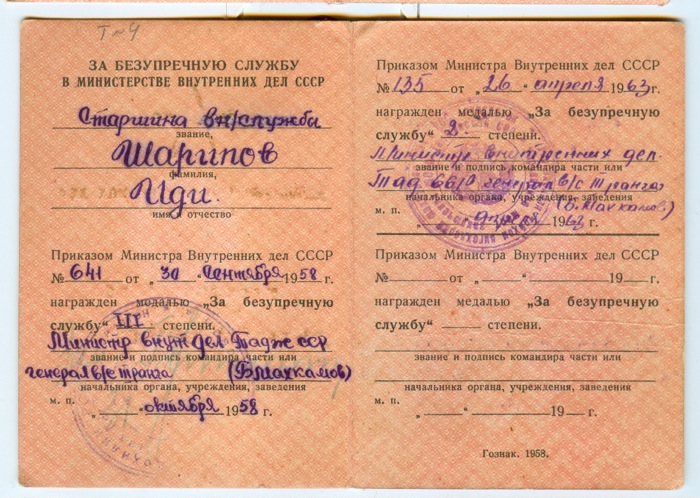 ЗА БЕЗУПРЕЧНУЮ СЛУЖБУ
В МИНИСТЕРСТВЕ ВНУТРЕННИХ ДЕЛ СССР
Старшина вн/службы
звание,
Шарипов
фамилия,
Иди.
имя и отчество
Приказом Министра Внутренних дел СССР
№ 641 от „30 сентября 1958 г.
награжден медалью „За безупречную
службу“ III степени.
Министр внут дел Тадж ССР
звание и подпись командира части или
генерал в/с ранга (Б.Махкамов)
начальника органа, учреждения, заведения
м. п. „ “ октября 1958 г.
Приказом Министра Внутренних дел СССР
№ 135 от „26“ апреля 1963 г.
награжден медалью „За безупречную
службу“ 2- степени.
Министр внутренних дел.
звание и подпись командира части или
Тад ССР генерал в/с ранга
начальника органа, учреждения, заведения
(Б.Махкамов.)
м. п. 1963 г.
Приказом Министра Внутренних дел СССР
№ от „ “ 19 г.
награжден медалью „За безупречную
службу“ степени.
звание и подпись командира части или
начальника органа, учреждения, заведения
м. п. „ “ 19 г.
Гознак. 1958.